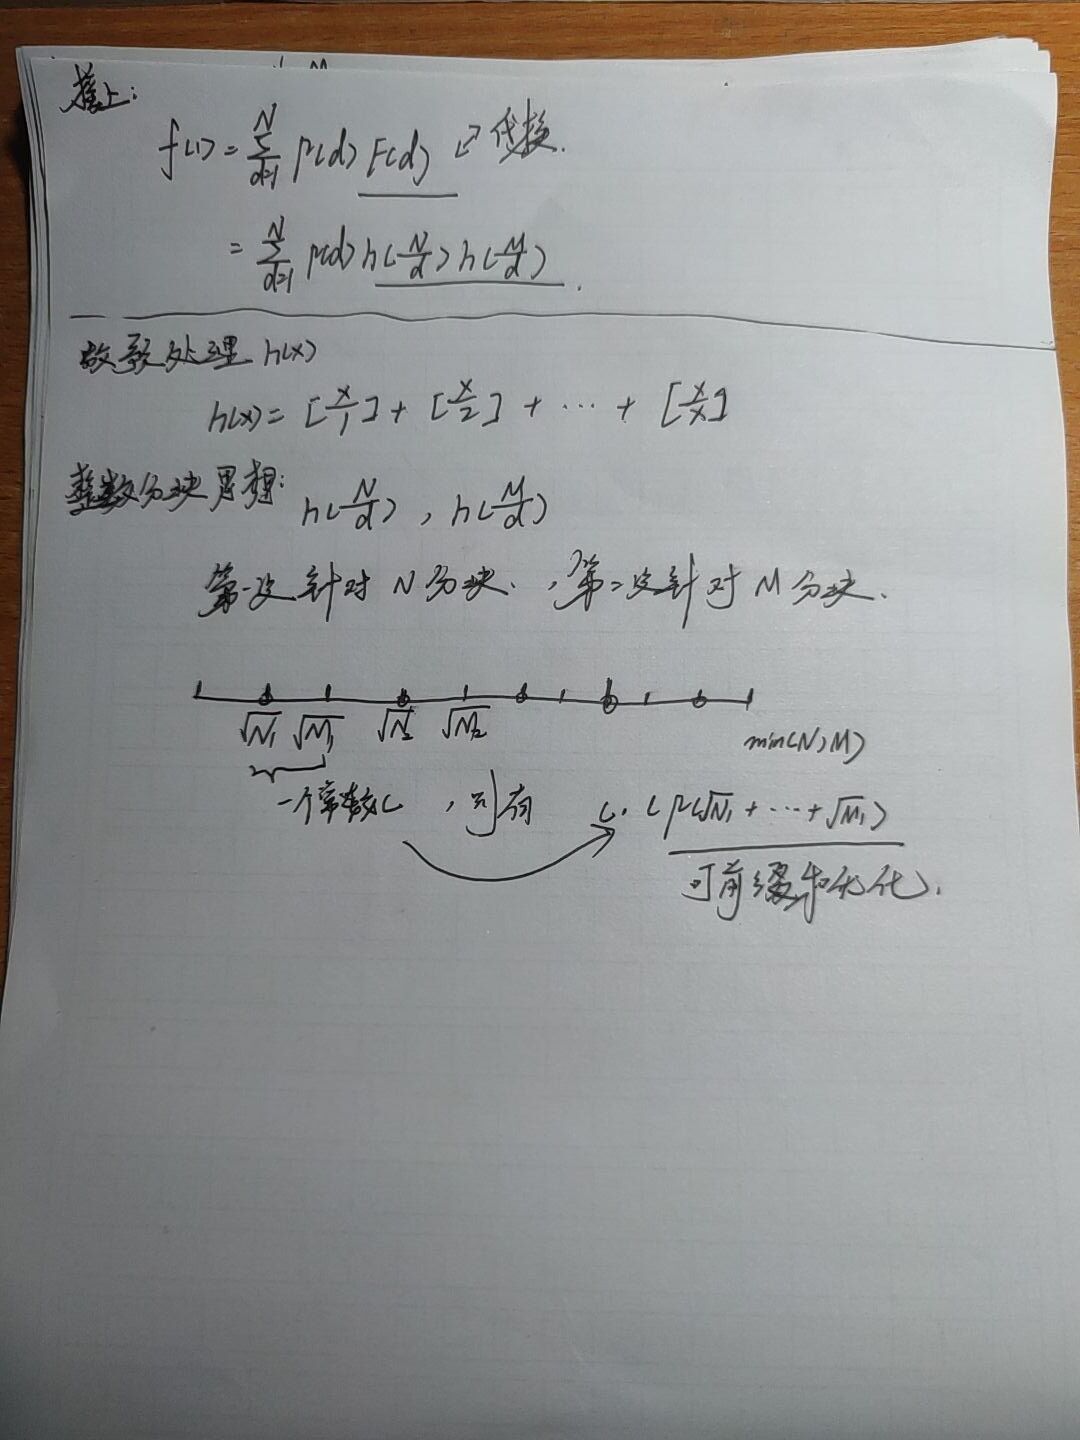 接上:
f(1) = N∑d=1 μ(d) F(d) 代换.
= N∑d=1 μ(d) h(N/d) h(M/d).
故预处理 h(x)
h(x) = [x/1] + [x/2] + ... + [x/x]
整数分块思想: h(N/d) , h(M/d)
第一次针对 N 分块. , 第二次针对 M 分块.
√N₁ √M₁ √N₂ √M₂ min(N,M)
一个常数C , 则有 C. (μ(√N₁ + ... + √M₁)
可前缀和优化.